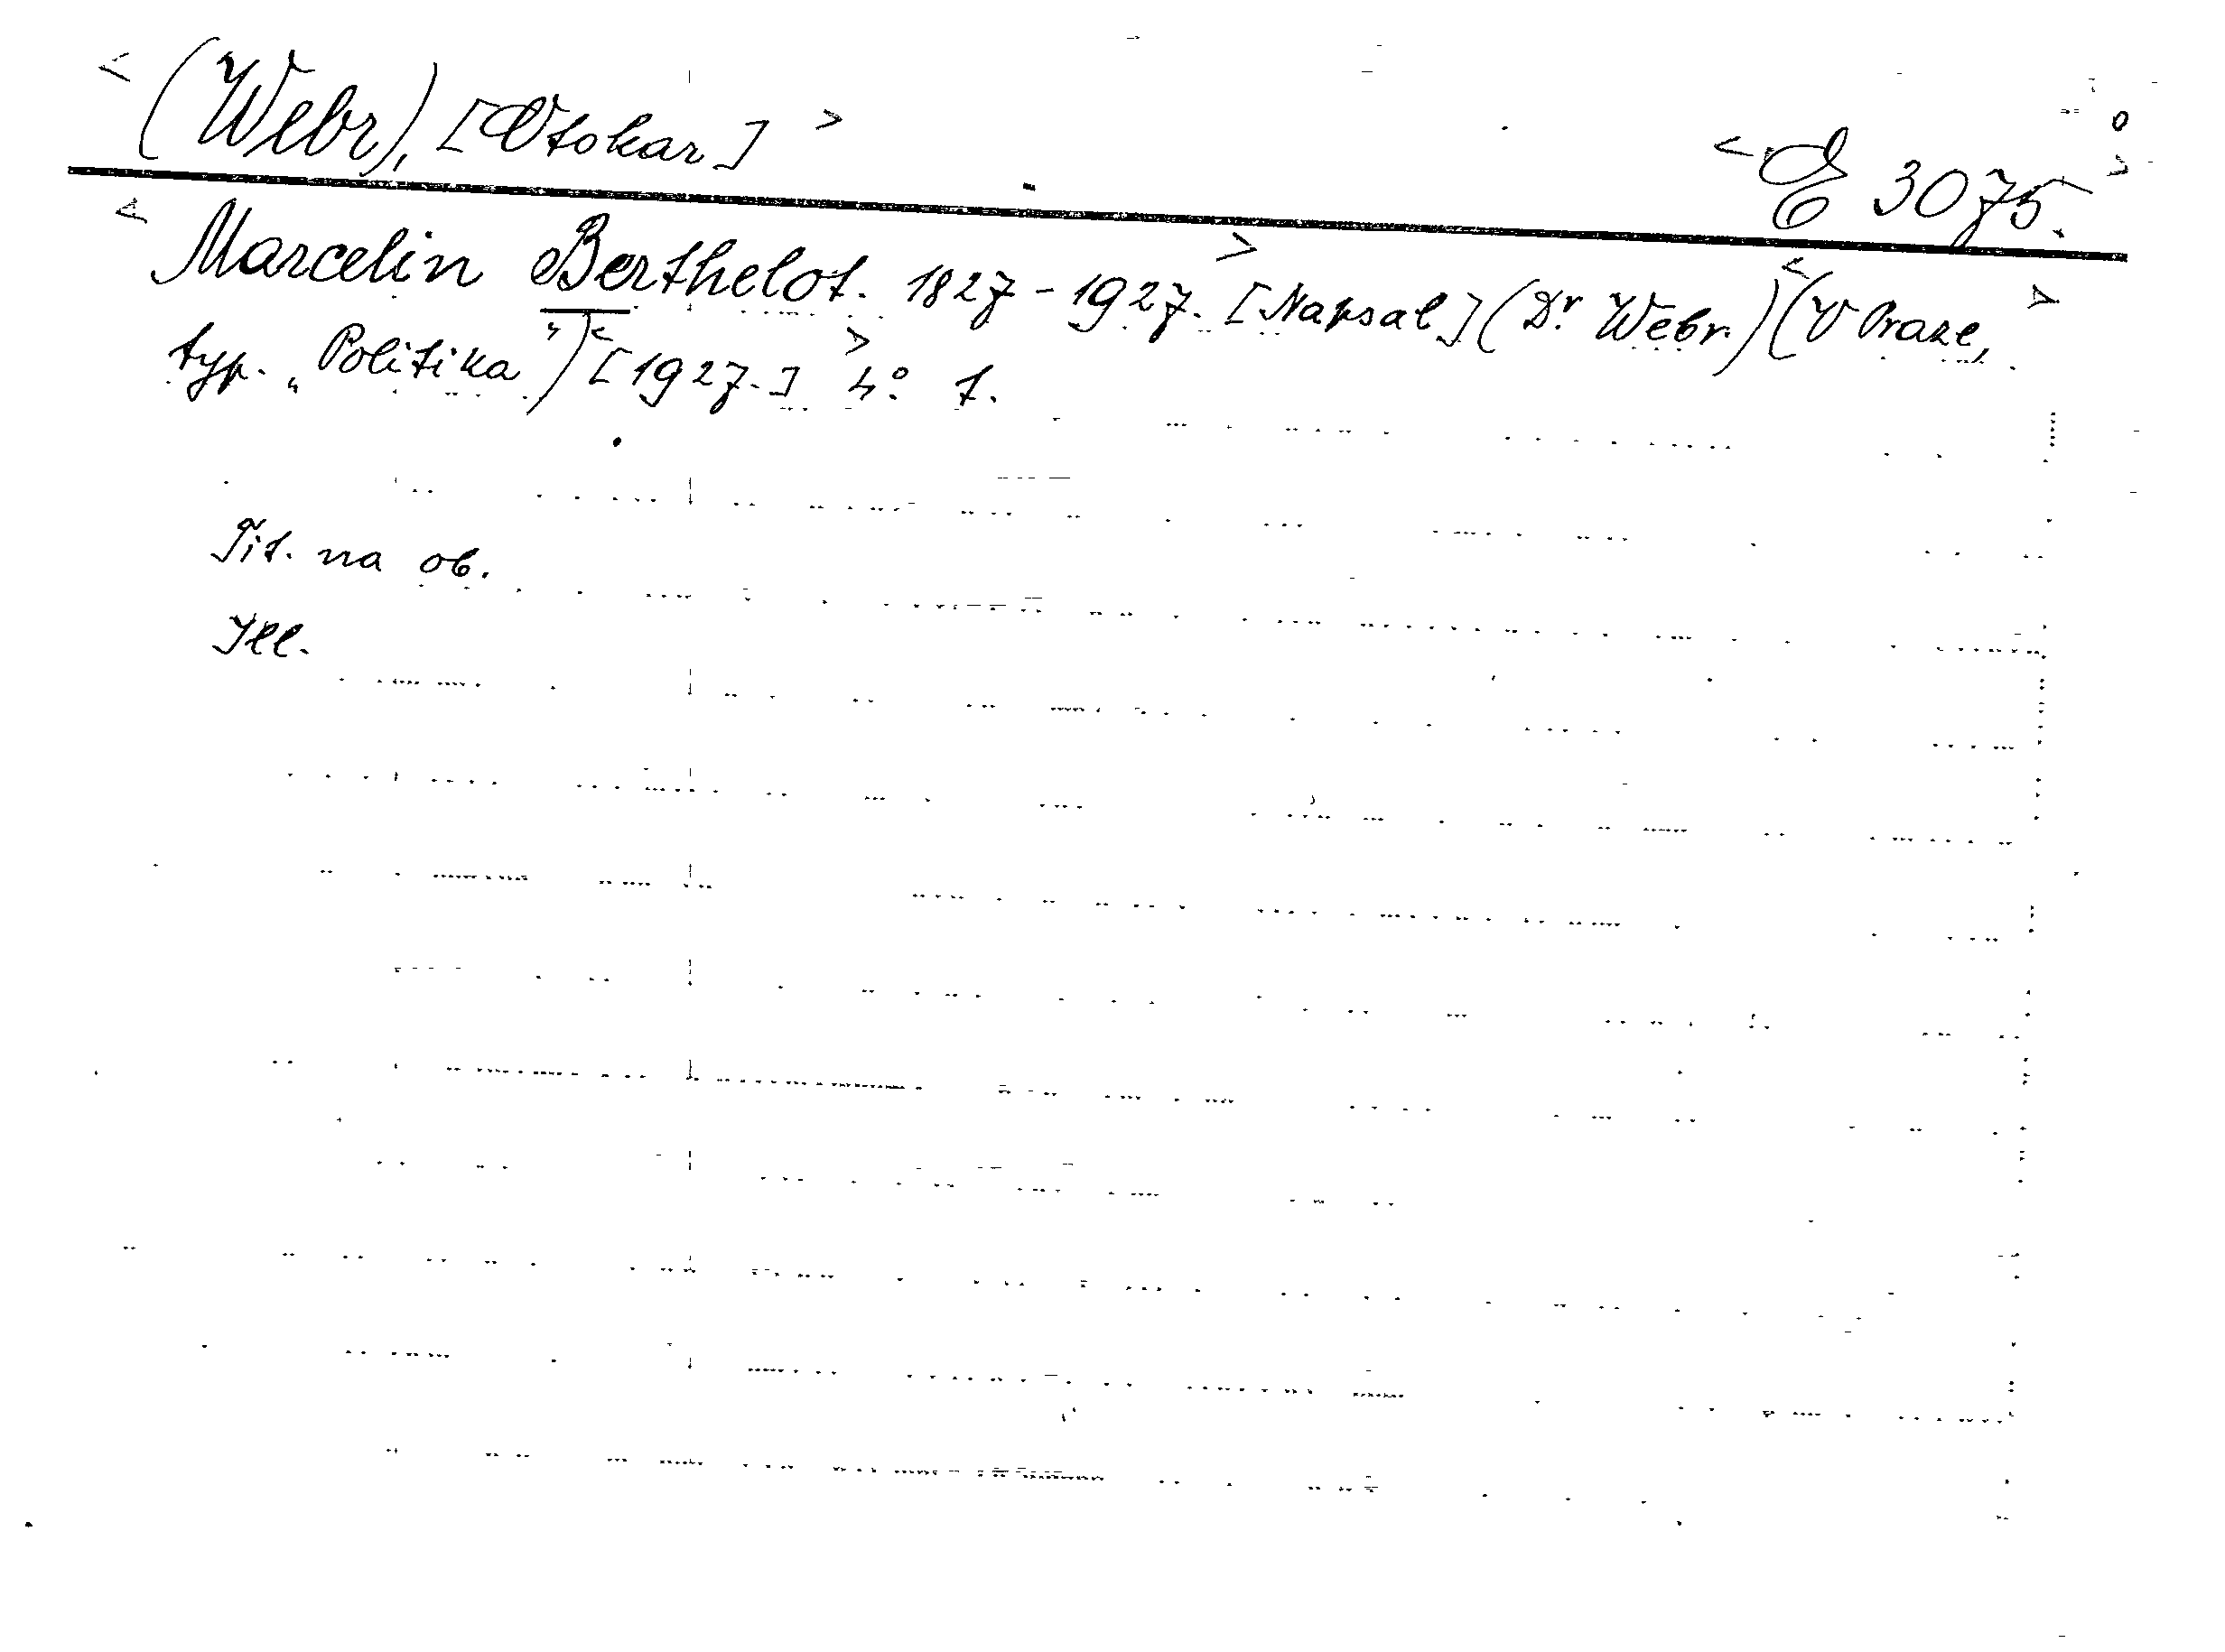 <(Webr), [Otokar]>
<E 3075.>
<Marcelin Berthelot.> 1827-1927. [Napsal] (Dr Webr.) <(V Praze,>
typ. „Politika") <[1927.]> 4° 7.
Tit. na ob.
Ill.